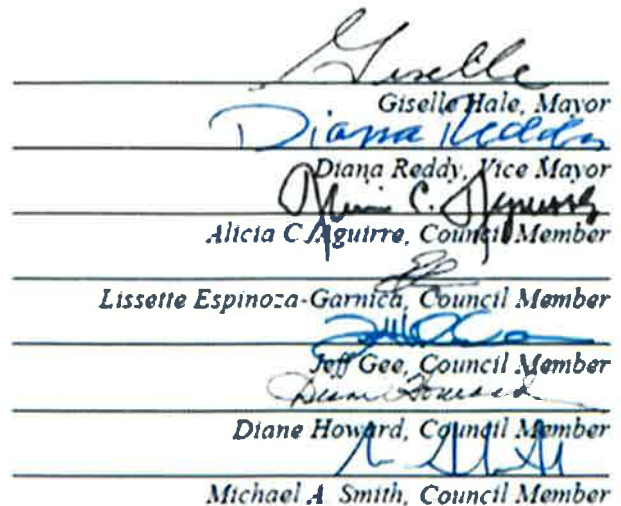 Giselle
Giselle Hale, Mayor
Diana Reddy
Diana Reddy, Vice Mayor
Alicia C. Aguirre
Alicia C Aguirre, Council Member
Lissette Espinoza-Garnica, Council Member
Jeff Gee, Council Member
Diane Howard
Diane Howard, Council Member
Michael A Smith, Council Member